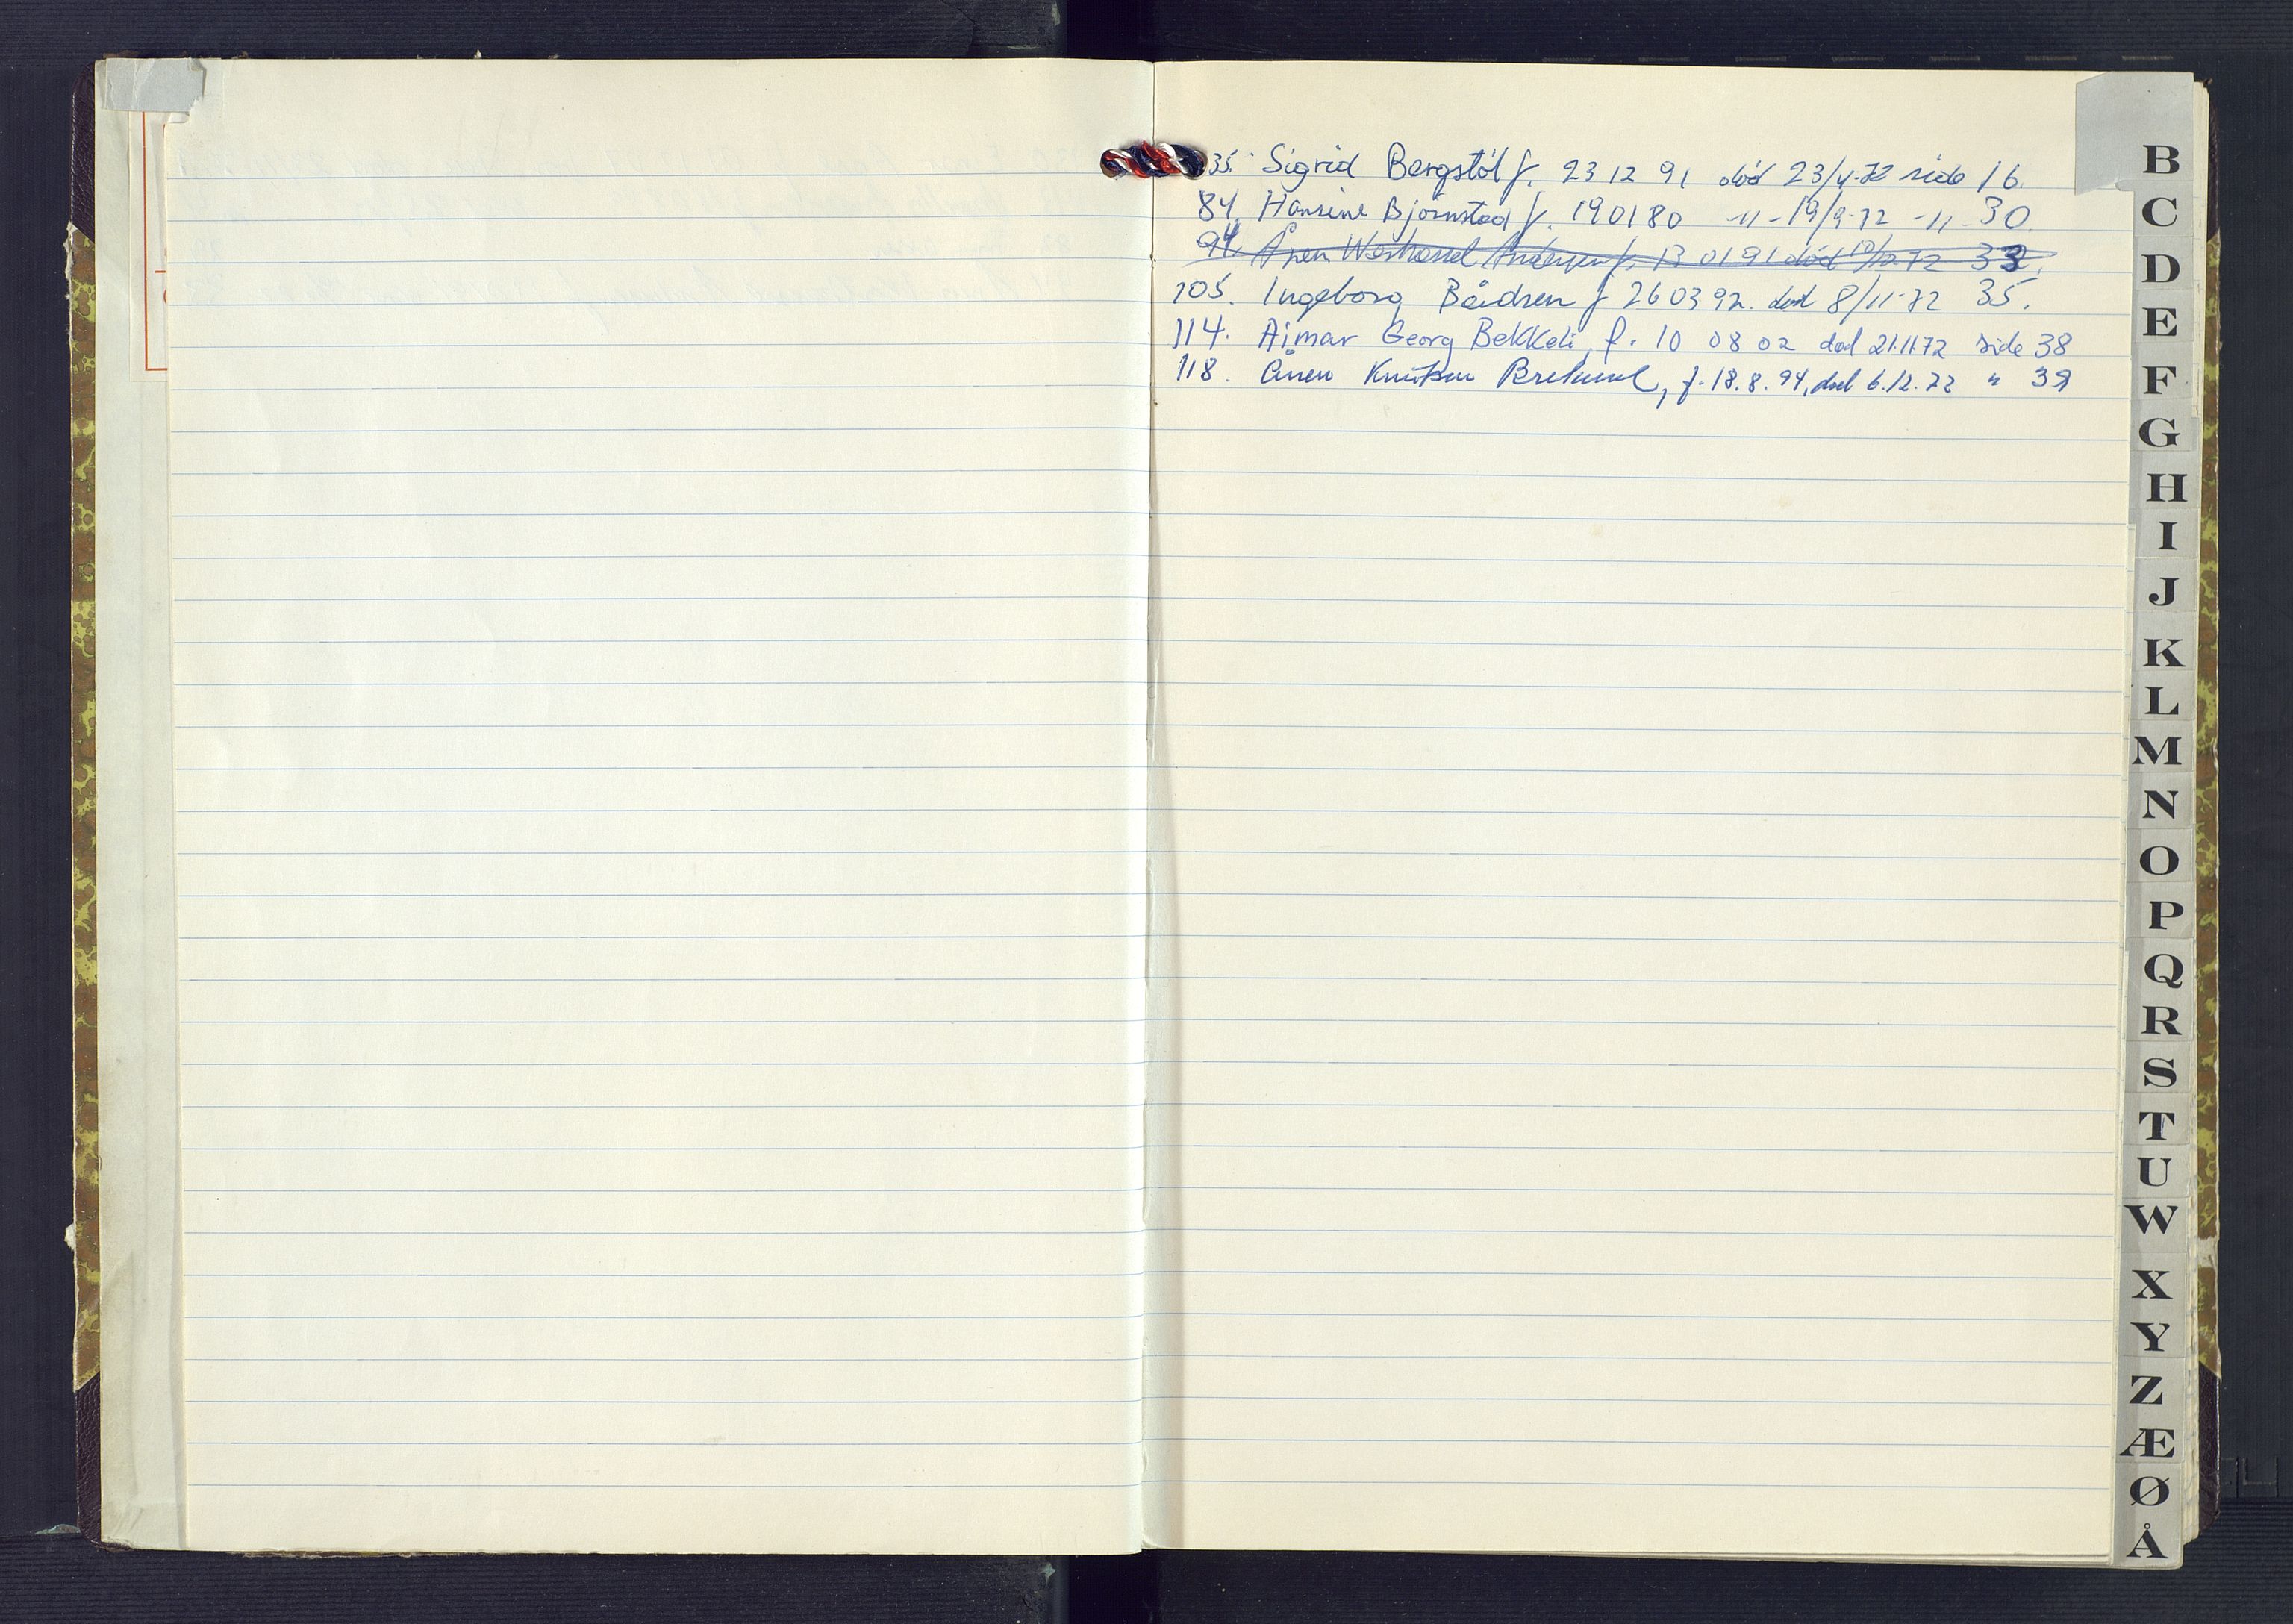 35. Sigrid Bergstøl f. 23 12 91 død 23/4-72 side 16.
84. Hansine Bjørnstad f. 190180 -11- 19/9-72 -11- 30
94. Ånen Andersen f. 13 01 91 død 72 33.
105. Ingeborg Bårdsen f 26 03 92. død 8/11-72 35.
114. Aimar Georg Bekkeli, f. 10 08 02 død 21.11.72 side 38
118. Ånen Knutsen Brelund, f. 18.8.94, død 6.12.72 " 39
B
C
D
E
F
G
H
I
J
K
L
M
N
O
P
Q
R
S
T
U
W
X
Y
Z
Æ
Ø
Å